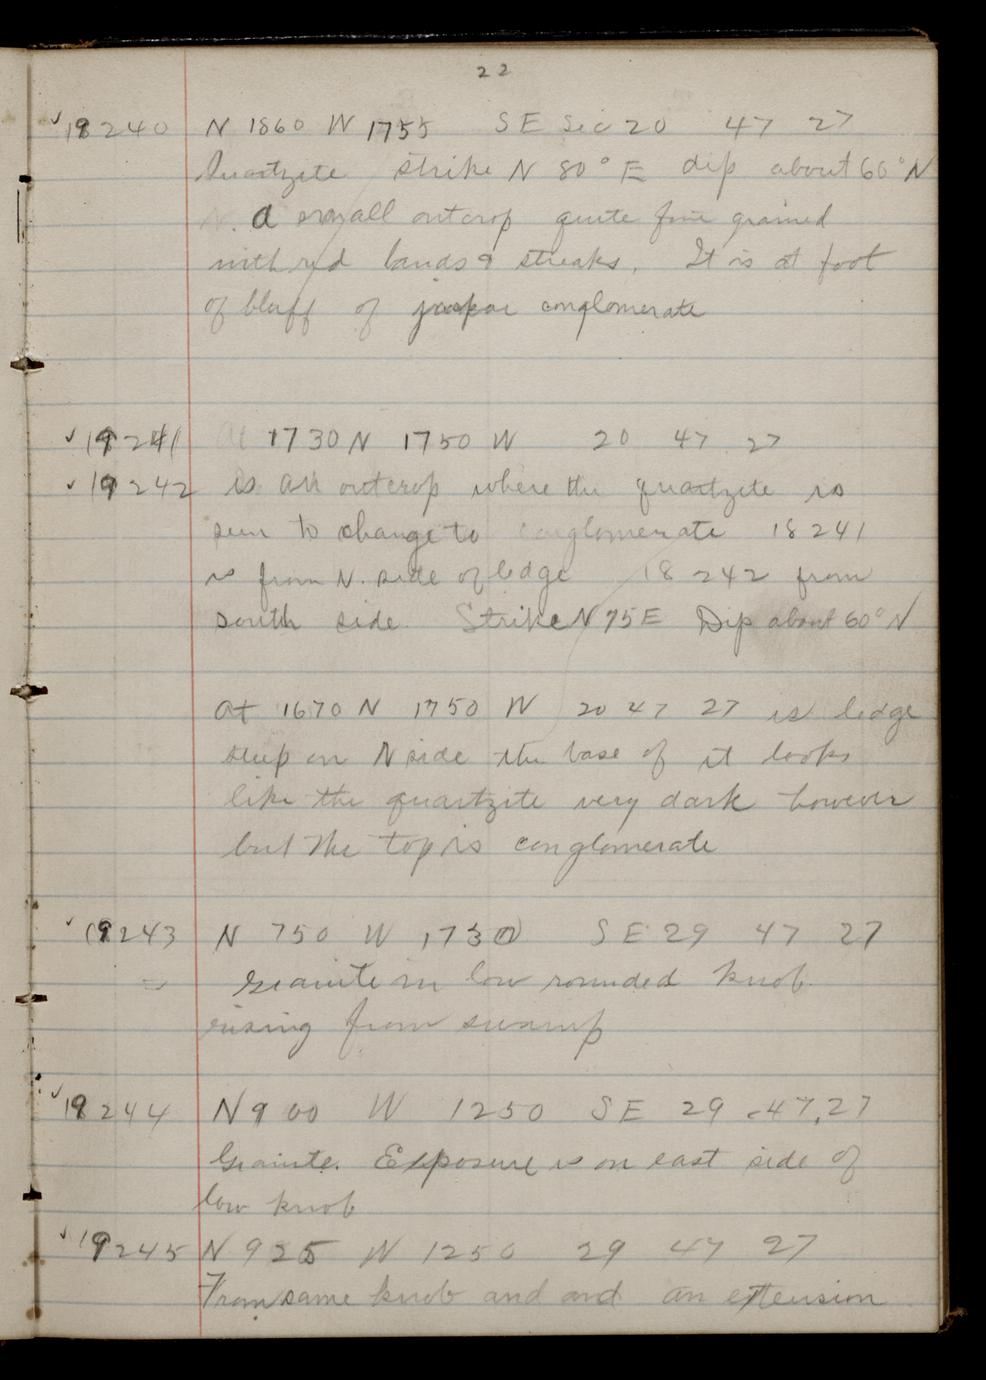 22
19240 N 1860 W 1755 SE Sec 20 47 27
Quartzite strike N 80° E dip about 60° N
a small outcrop quite fine grained
with red bands & streaks. It is at foot
of bluff of jaspar conglomerate
19241 At 1730 N 1750 W 20 47 27
19242 is an outcrop where the quartzite is
seen to change to conglomerate 18241
is from N. side of ledge 18242 from
south side. Strike N 75 E Dip about 60° N
At 1670 N 1750 W 20 47 27 is ledge
steep on N side the base of it looks
like the quartzite very dark however
but the top is conglomerate
19243 N 750 W 1730 SE 29 47 27
Granite in low rounded knob
rising from swamp
19244 N 900 W 1250 SE 29 47,27
Granite. Exposure is on east side of
low knob
19245 N 925 W 1250 29 47 27
From same knob and and an extension